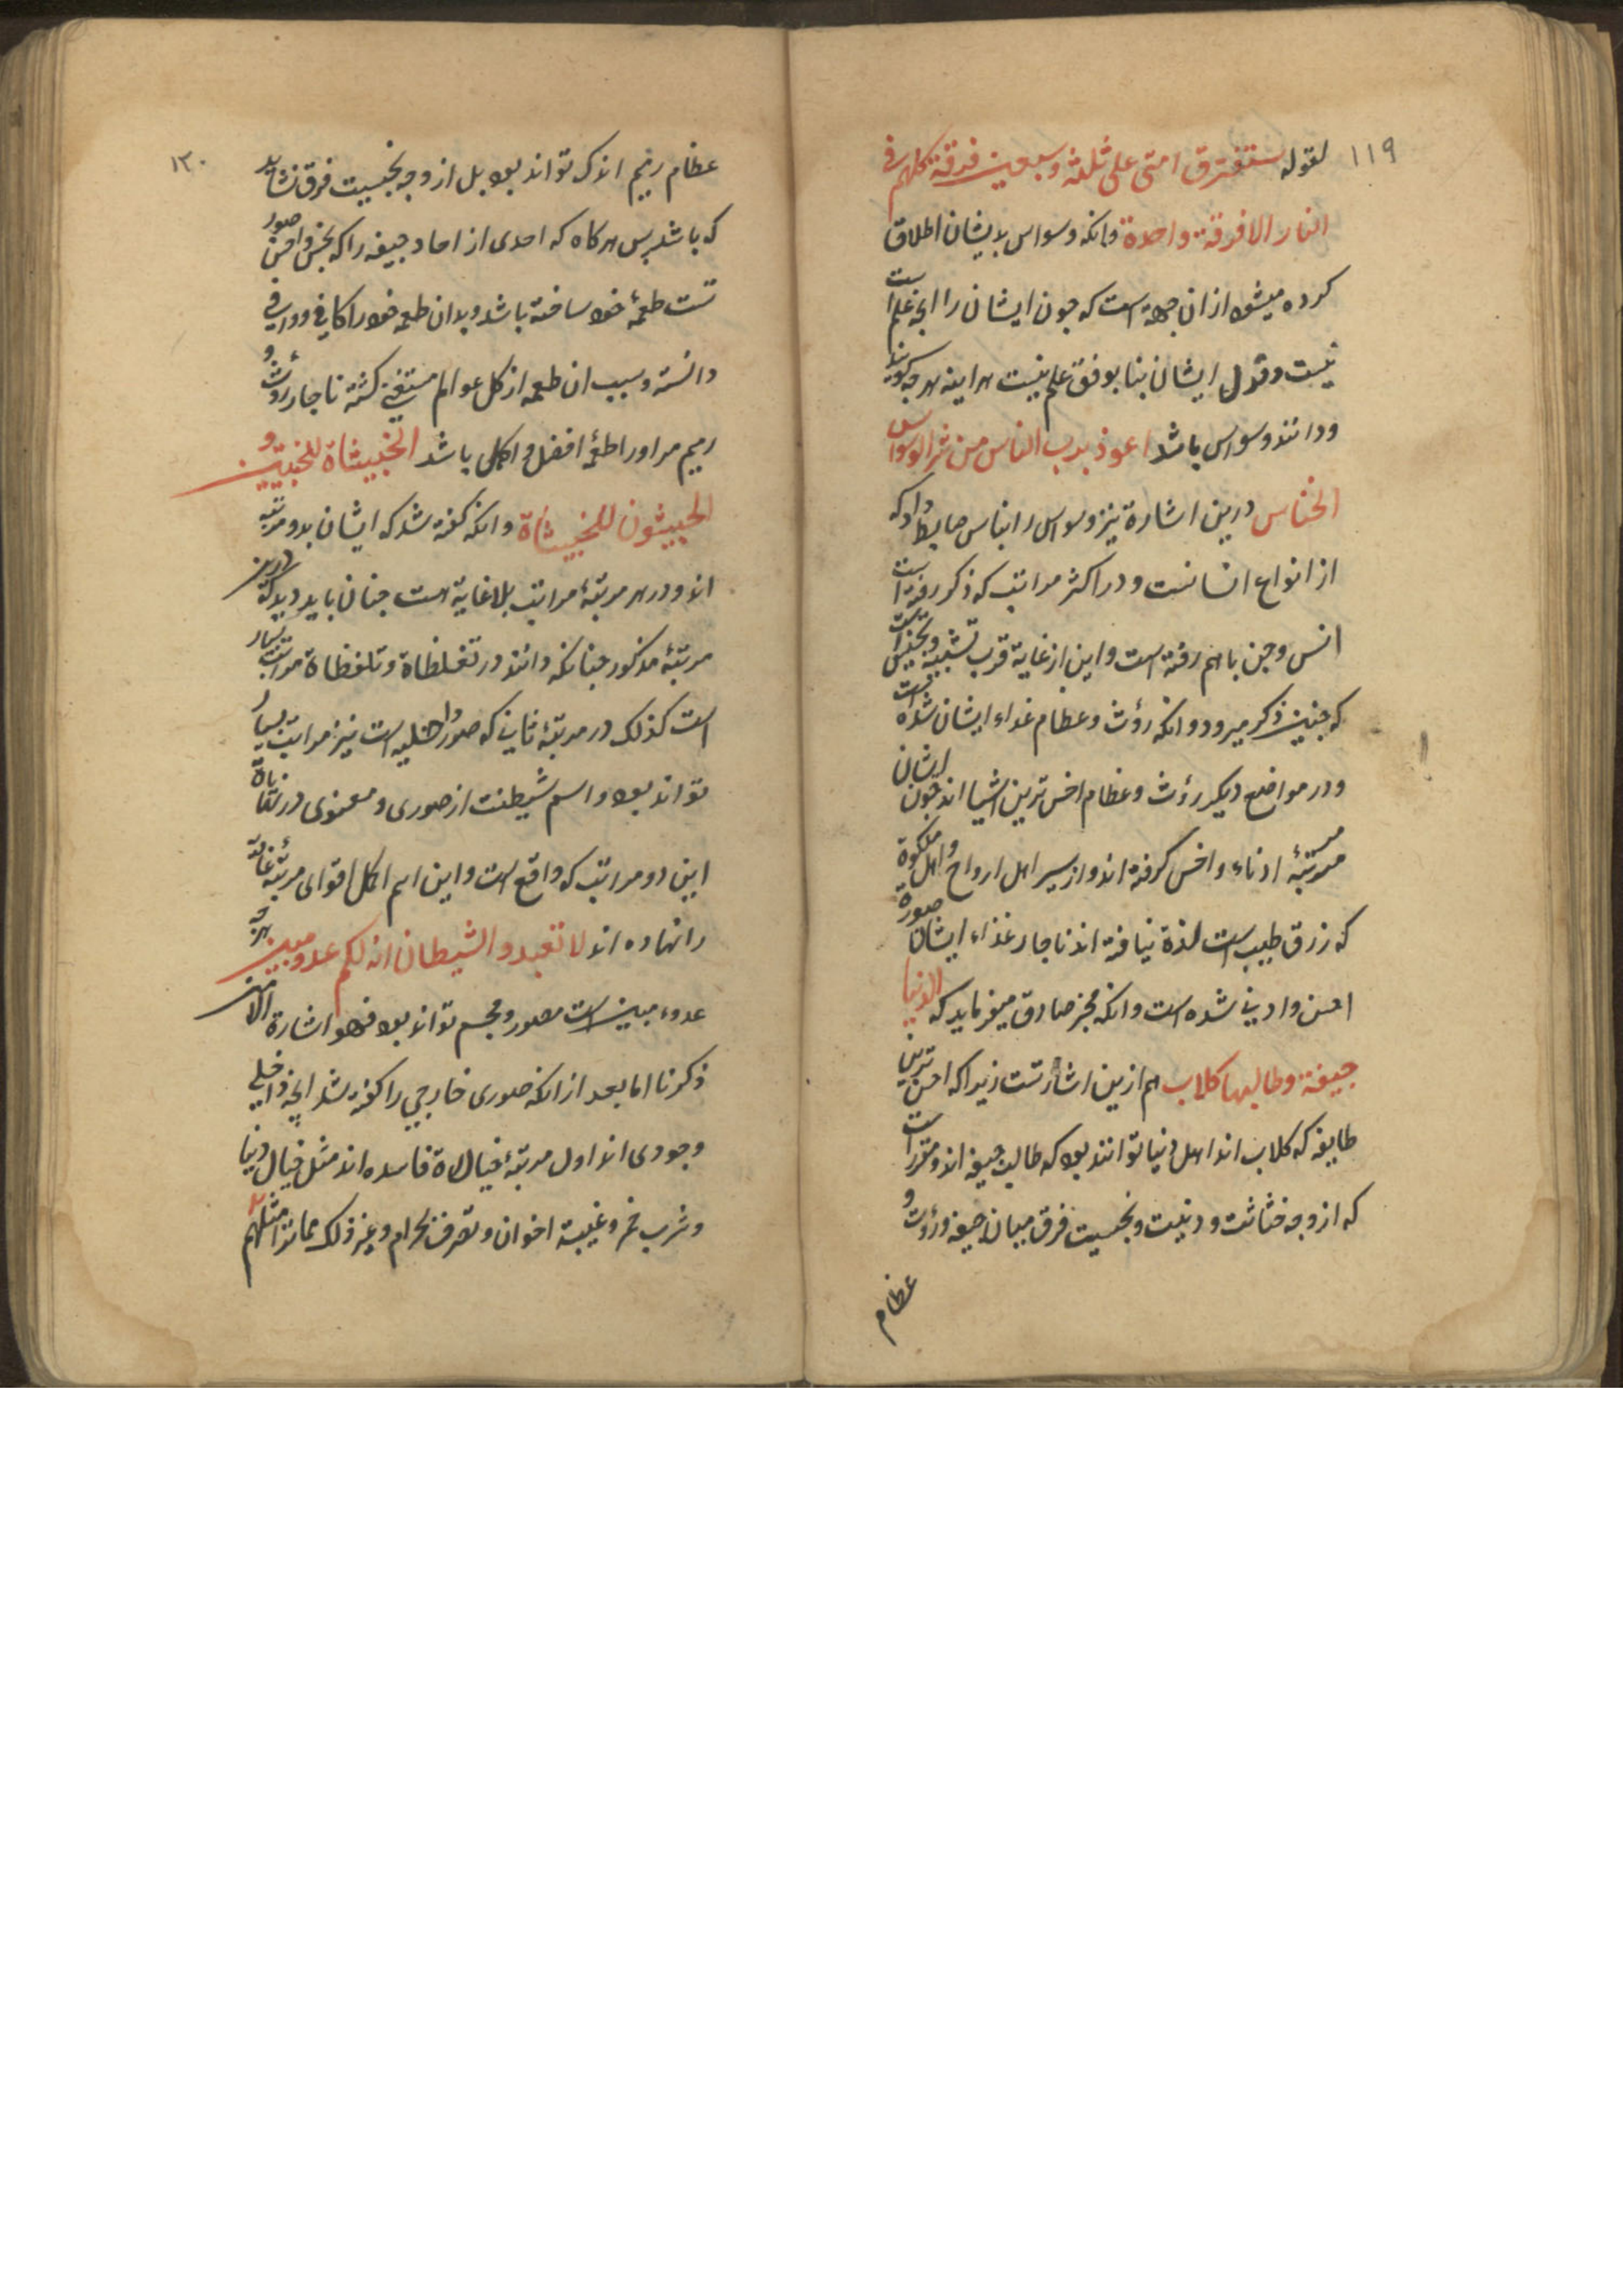 ۱۱۹
لقوله ستفترق امتی علی ثلثة وسبعین فرقة کلهم فی
النار الا فرقة واحدة وانکه وسواس بایشان اطلاق
کرده میشود از ان جهة است که جون ایشان را انجه علم است
نیست وقول ایشان بنا بوفق علم نیست هر اینه هر جه کویند
ودانند وسواس باشد اعوذ برب الناس من شر الوسواس
الخناس درین اشارة نیز وسواس را بناس ضابط داد که
از انواع انسانست ودر اکثر مراتب که ذکر رفته است
انس وجن باهم رفته است واین از غایة قرب تشبیه وتجنیس است
که جنین ذکر میرود وانکه رؤث وعظام غداء ایشان شده است
ودر مواضع دیکر رؤث وعظام اخس ترین اشیا اند جون ایشان
مرتبۀ ادناء واخس کرفته اند واز سیر اهل ارواح واهل ملکوة
که رزق طیب است لذة نیافته اند ناجار غذاء ایشان صورة
اخس وادنی شده است وانکه مخبر صادق میفرماید که الدنیا
جیفة وطالبها کلاب هم ازین اشارتست زیرا که اخس ترین
طایفه که کلاب اند اهل دنیا توانند بود که طالب جیفه اند ومقرر است
که از وجه خثاثت ودنیت ونجسیت فرق میان جیفه ورؤث و
عظام
۱۲۰
عظام رمیم اندک تواند بود بل از وجه نجسیت فرق نشاید
که باشد پس هرکاه که احدی از احاد جیفه را که نجس واخس صور
تست طعمۀ خود ساخته باشد وبدان طعمه خود را کافی ووافی
دانسته وسبب ان طعمه از کل عوالم مستغنی کشته ناجار رؤث و
رمیم مر اورا طعمۀ افضل واکمل باشد الخبیثاة للخبیثین و
الخبیثون للخبیثاة وانکه کفته شد که ایشان بدو مرتبه
اند ودر هر مرتبۀ مراتب بلا غایة است جنان باید دید که درین
مرتبۀ مذکور جنانکه دانند در تغلظاة وتلفظاة مراتب بسیار
است کذلک در مرتبۀ ثانی که صور داخلیه است نیز مراتب بسیار
تواند بود واسم شیطنت از صوری ومعنوی در
این دو مراتب که واقع است واین اسم اکمل اقوای مرتبۀ
را نهاده اند لا تعبدوا الشیطان انه لکم عدو مبین
عدوء مبین است مصور ومجسم تواند بود فهو اشارة الا من
ذکرنا اما بعد از انکه صوری خارجی را کفته شد انجه داخلی
وجودی اند اول مرتبۀ خیالاة فاسده اند مثل خیال دنیا
وشرب خمر وغیبة اخوان وتصرف بحرام وغیر ذلک مما مثلهم